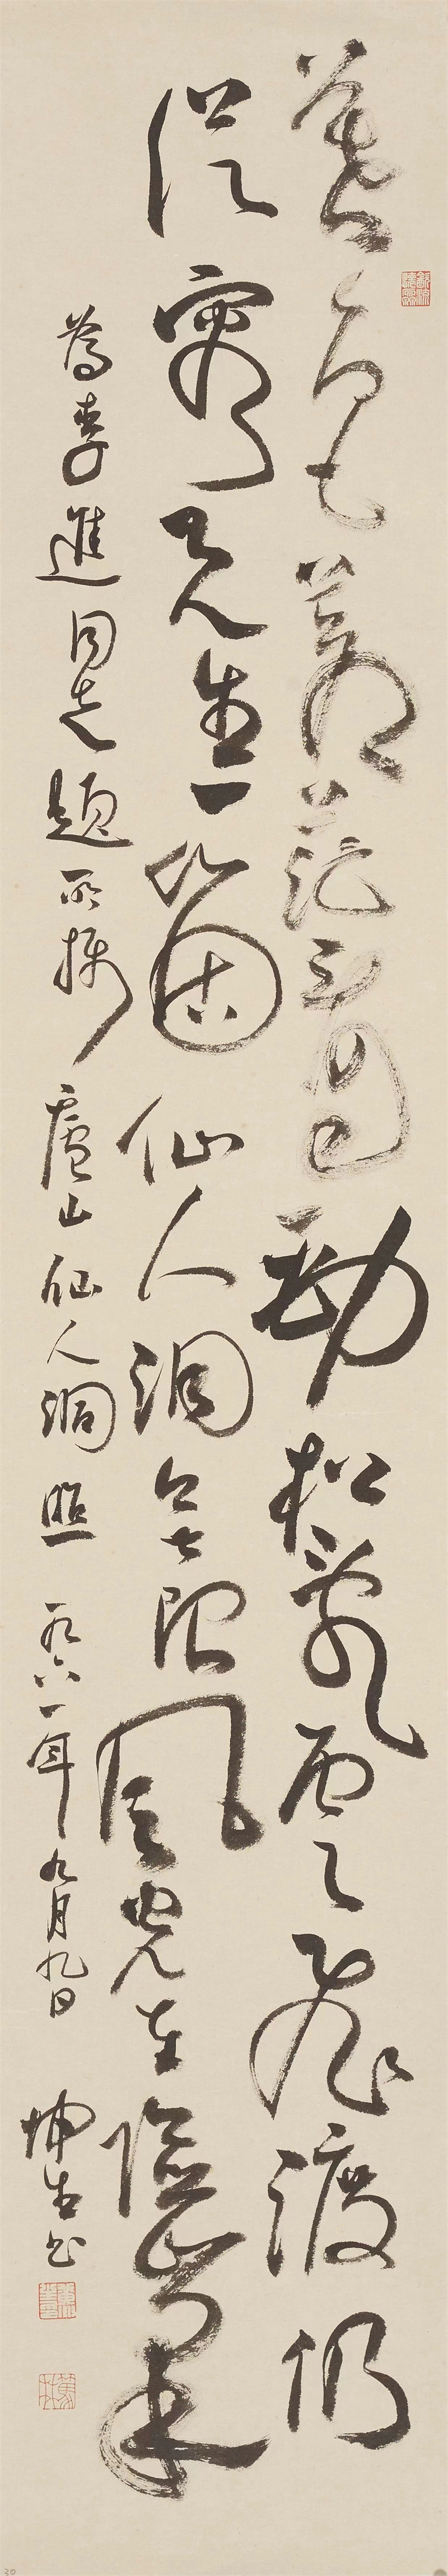 暮色蒼茫看勁松亂雲飛渡仍
從容天生一箇仙人洞無限風光在險峯
為李進同志題所攝廬山仙人洞照 一九六一年九月九日 生书
20